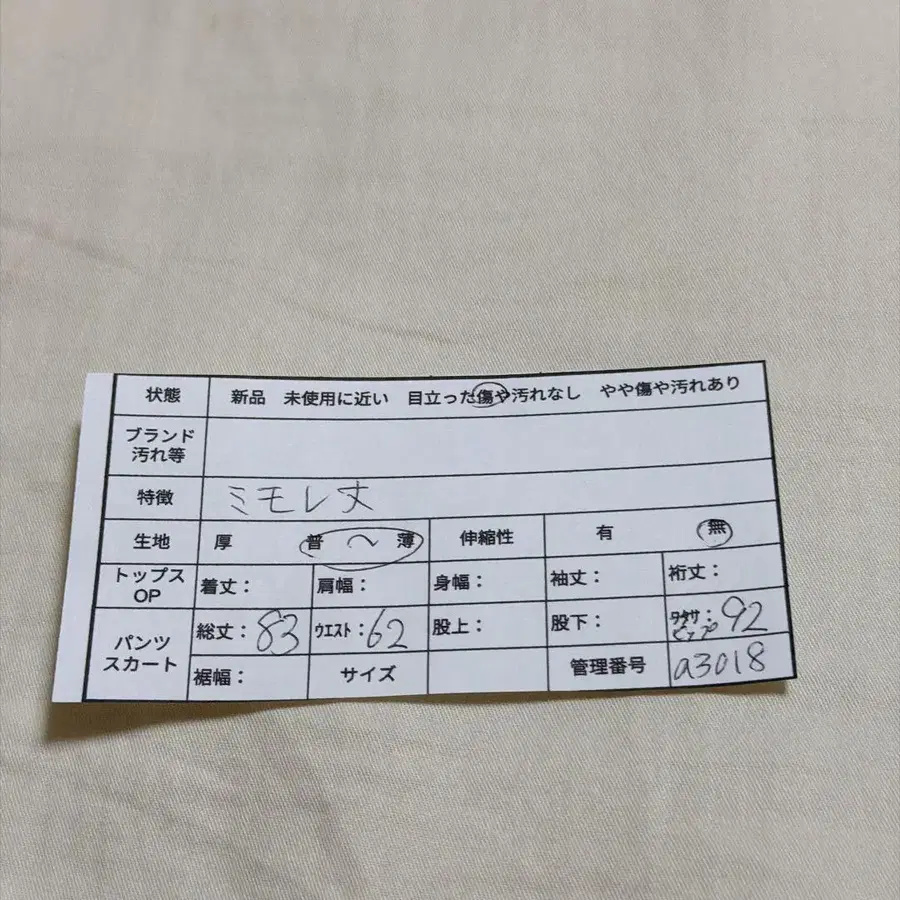 状態 新品 未使用に近い 目立った傷や汚れなし やや傷や汚れあり
ブランド
汚れ等
特徴 ミモレ丈
生地 厚 普 〜 薄 伸縮性 有 無
トップス
OP
着丈: 肩幅: 身幅: 袖丈: 裄丈:
パンツ
スカート
総丈:83 ウエスト:62 股上: 股下: ワタリ:92
ヒップ
裾幅: サイズ 管理番号 a3018